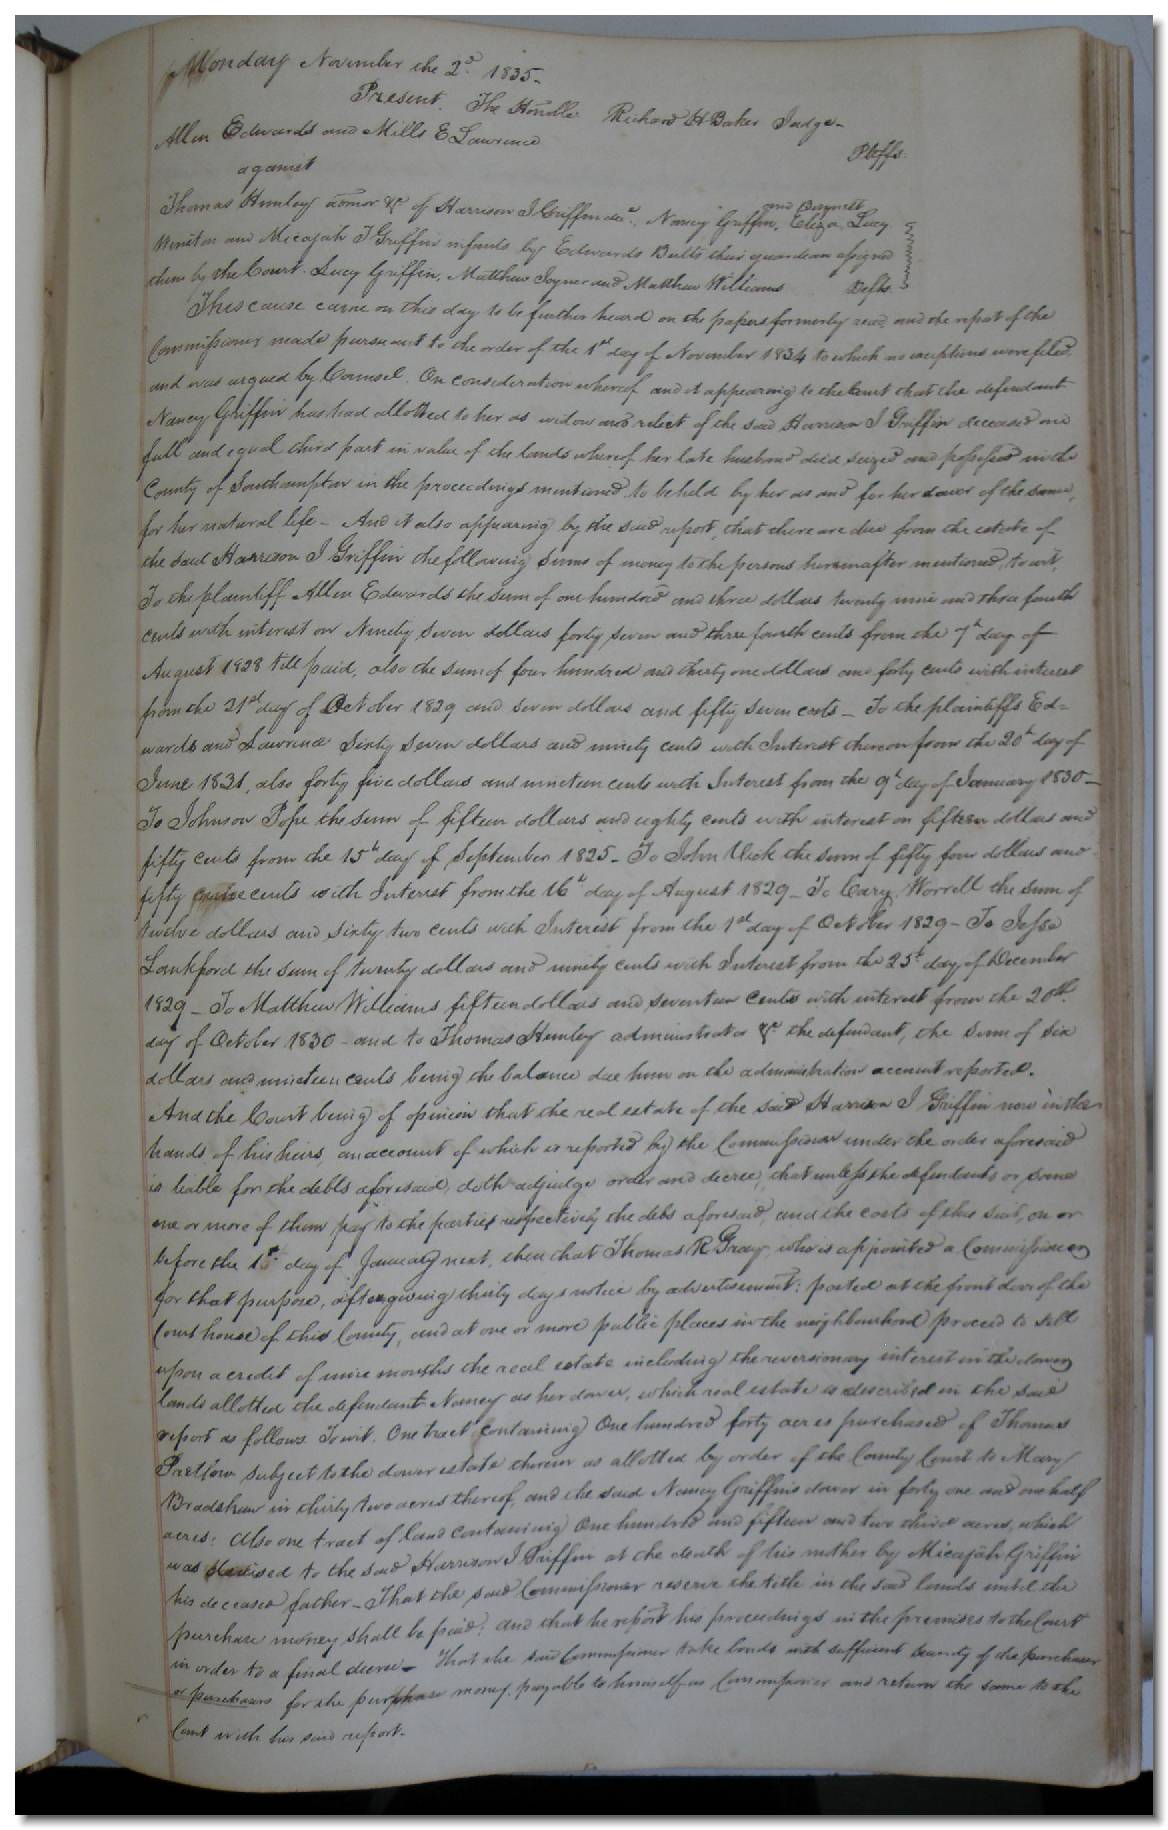 Monday November the 2d. 1835.
Present. The Honble Richard H Baker Judge
Allen Edwards and Mills E Lawrence
Pltffs.
against
Thomas Hunley admor &c of Harrison I Griffin decd., Nancy Griffin, Eliza, Lucy
and
Winston and Micajah T Griffin infants by Edwards Butts their guardian assigned
them by the Court. Lucy Griffin, Matthew Joyner and Matthew Williams Defts.
This cause came on this day to be further heard on the papers formerly read and the report of the
Commissioner made pursuant to the order of the 1st day of November 1834 to which no exceptions were filed,
and was argued by Counsel. On consideration whereof and it appearing to the Court that the defendant
Nancy Griffin has had allotted to her as widow and relict of the said Harrison I Griffin deceased one
full and equal third part in value of the lands whereof her late husband died seized and possessed in the
County of Southampton in the proceedings mentioned to be held by her as and for her dower of the same,
for her natural life – And it also appearing by the said report, that there are due from the estate of
the said Harrison I Griffin the following sums of money to the persons hereinafter mentioned, to wit,
To the plaintiff Allen Edwards the sum of one hundred and three dollars twenty nine and three fourth
cents with interest on Ninety seven dollars forty seven and three fourth cents from the 7th day of
August 1828 till paid, also the sum of four hundred and thirty one dollars and forty cents with interest
from the 21st day of October 1829 and seven dollars and fifty seven costs – To the plaintiffs Ed=
wards and Lawrence Sixty Seven dollars and ninety cents with Interest thereon from the 20th day of
June 1831, also forty five dollars and nineteen cents with Interest from the 9th day of January 1830 –
To Johnson Pope the sum of fifteen dollars and eighty cents with interest on fifteen dollars and
fifty cents from the 15th day of September 1825 – To John Vick the sum of fifty four dollars and
fifty cents with Interest from the 16th day of August 1829 – To Cary Worrell the sum of
twelve dollars and sixty two cents with Interest from the 1st day of October 1829 – To Jesse
Lankford the sum of twenty dollars and ninety cents with Interest from the 25th day of December
1829 – To Matthew Williams fifteen dollars and seventeen cents with interest from the 20th
day of October 1830 – and to Thomas Hunley administrator &c. the defendant, the sum of six
dollars and nineteen cents being the balance due him on the administration account reported.
And the Court being of opinion that the real estate of the said Harrison I Griffin now in the
hands of his heirs, an account of which is reported by the Commissioner under the order aforesaid
is liable for the debts aforesaid, doth adjudge order and decree, that unless the defendants or some
one or more of them pay to the parties respectively the debs aforesaid, and the costs of this suit, on or
before the 1st day of January next, then that Thomas R Gray, who is appointed a Commissioner
for that purpose, after giving thirty days notice by advertisement: posted at the front door of the
Courthouse of this County, and at one or more public places in the neighbourhood proceed to sell
upon a credit of nine months the real estate including the reversionary interest in the dower
lands allotted the defendant Nancy as her dower, which real estate is described in the said
report as follows. To wit. One tract containing One hundred forty acres purchased of Thomas
Pretlow subject to the dower estate therein as allotted by order of the County Court to Mary
Bradshaw in thirty two acres thereof, and the said Nancy Griffins dower in forty one and one half
acres: Also one tract of land containing One hundred and fifteen and two third acres, which
was devised to the said Harrison I Griffin at the death of his mother by Micajah Griffin
his deceased father – That the said Commissioner reserve the title in the said lands until the
purchase money shall be paid: and that he report his proceedings in the premises to the Court
in order to a final decree – That the said Commissioner take bonds with sufficient security of the purchaser
or purchasers for the purchase money, payable to himself as Commissioner and return the same to the
Court with his said report.